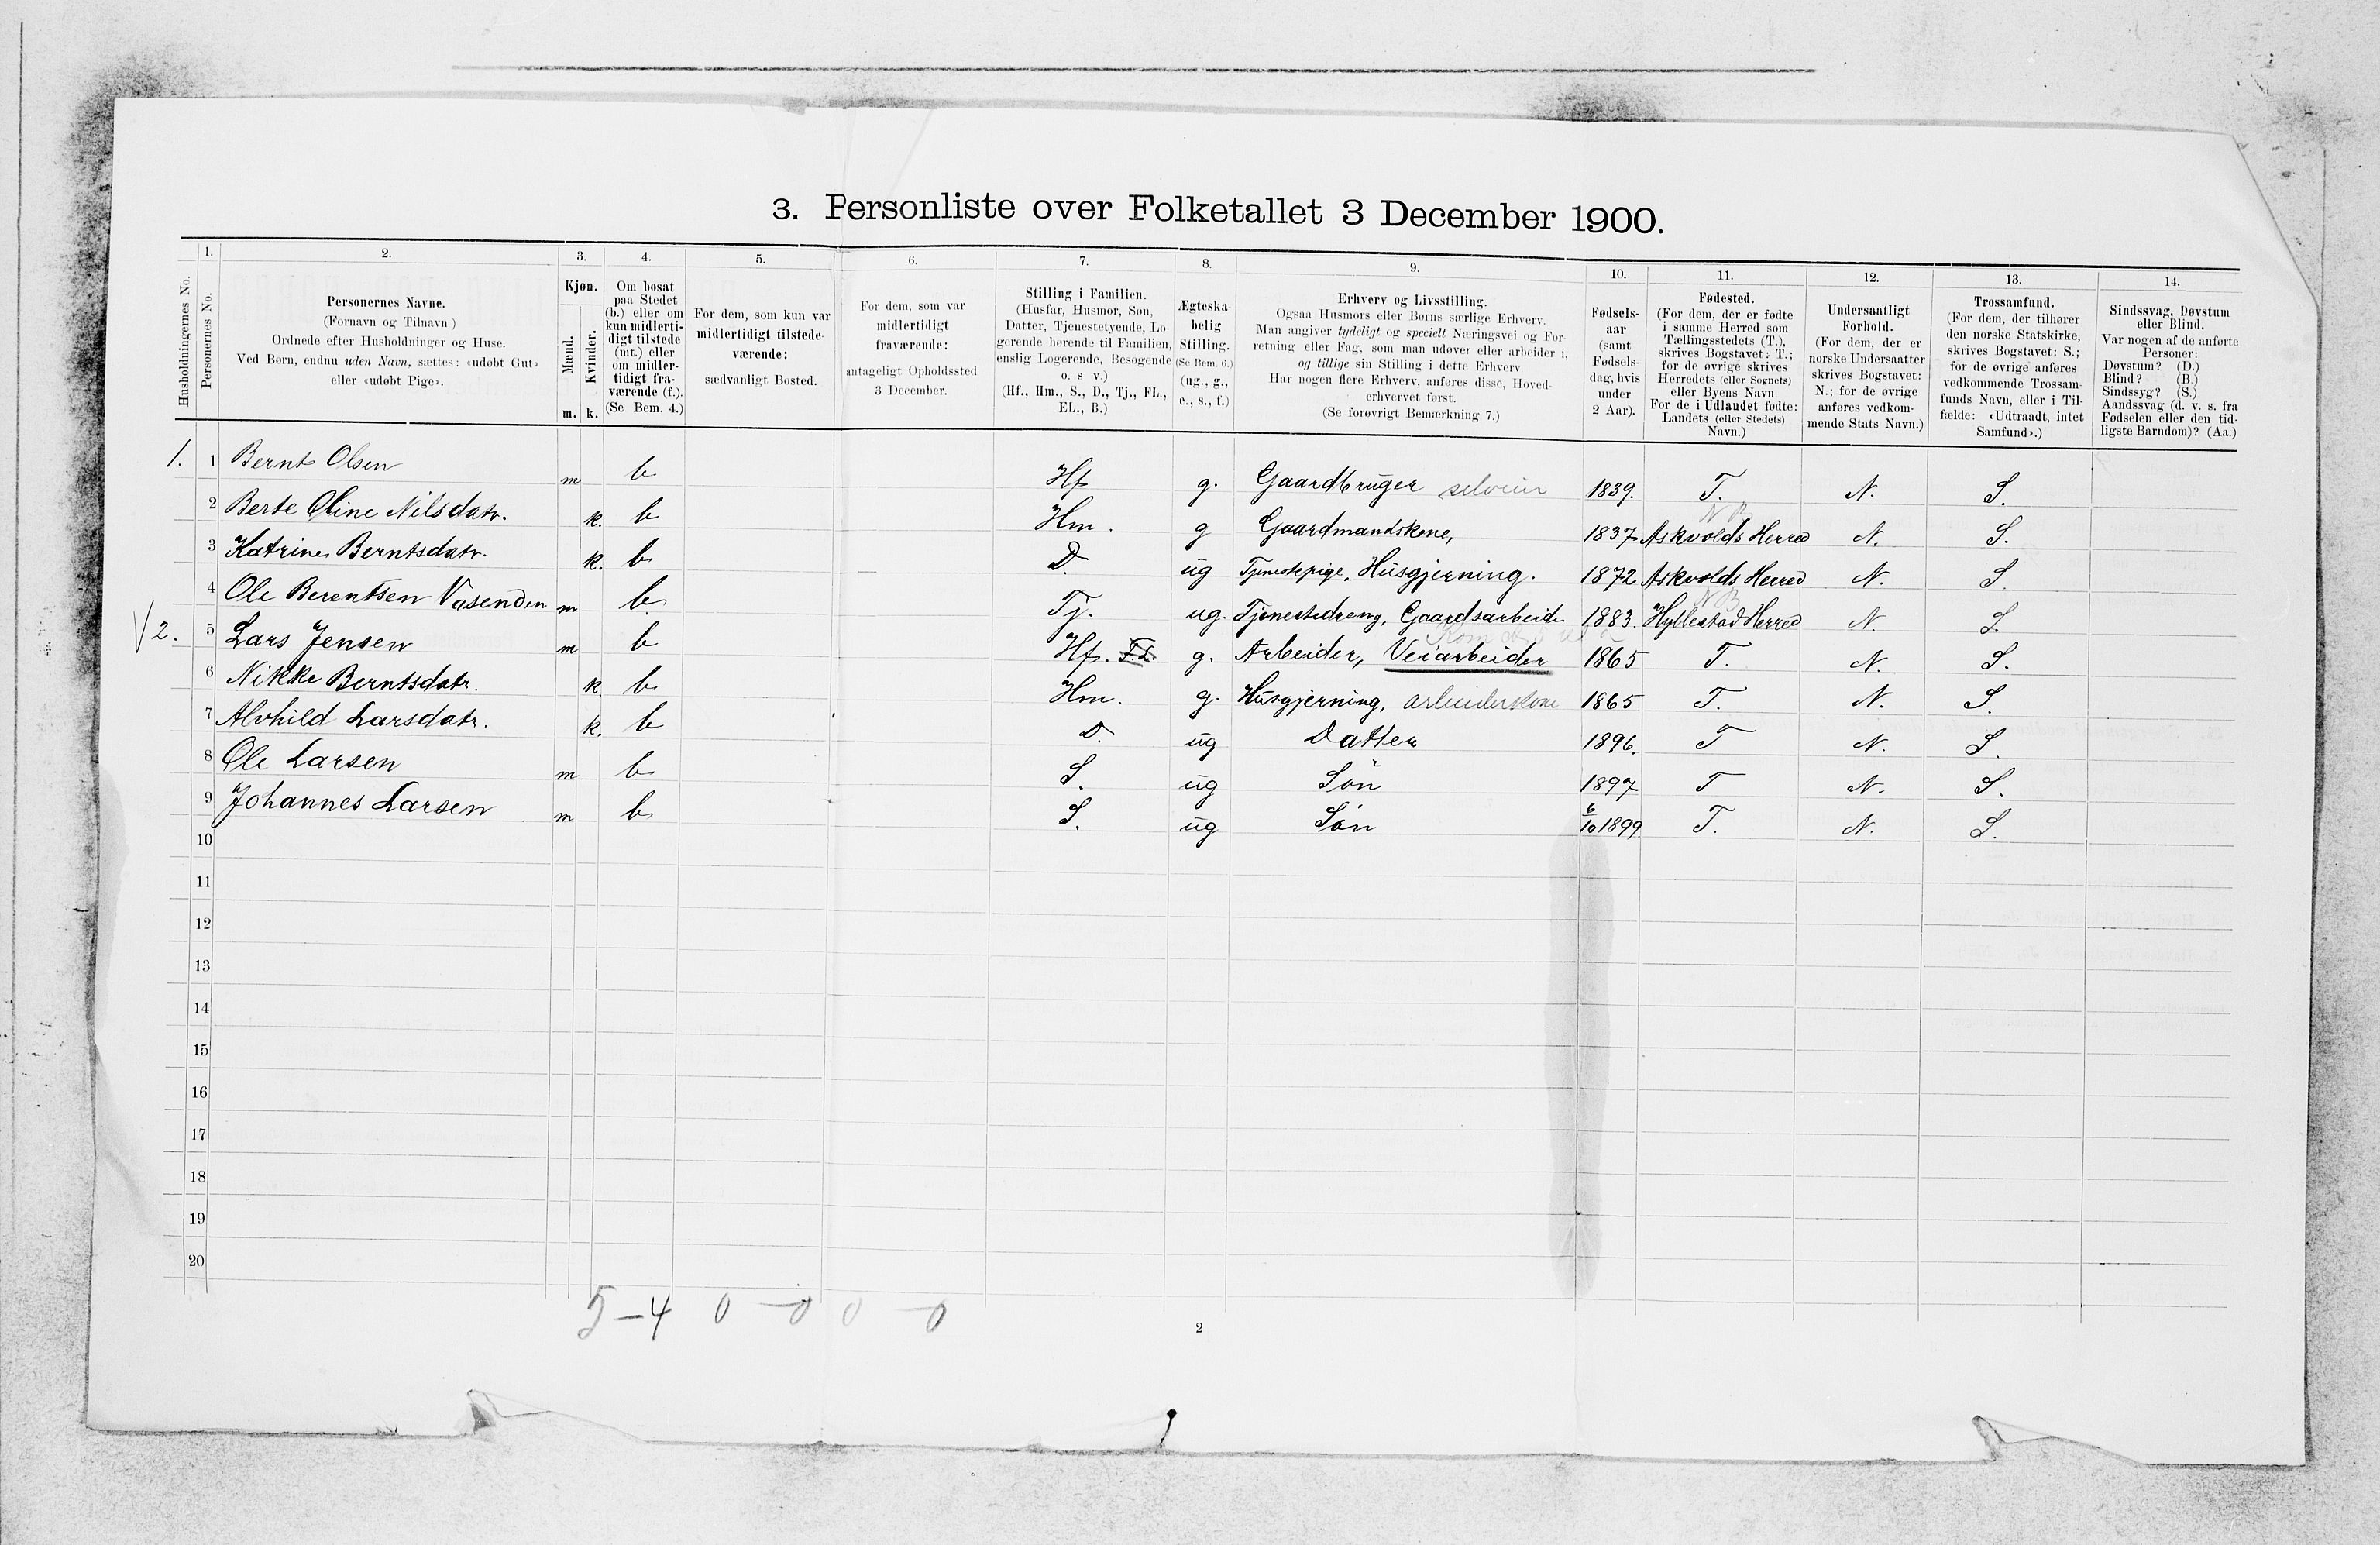 3. Personliste over Folketallet 3 December 1900.
1. 2. 3. 4. 5. 6. 7. 8. 9. 10. 11. 12. 13. 14.
Husholdningernes No.
Personernes No.
Personernes Navne.
(Fornavn og Tilnavn)
Ordnede efter Husholdninger og Huse.
Ved Børn, endnu uden Navn, sættes: «udøbt Gut»
eller «udøbt Pige».
Kjøn.
Mænd.
Kvinder.
m. k.
Om bosat
paa Stedet
(b.) eller om
kun midlerti-
digt tilstede
(mt.) eller
om midler-
tidigt fra-
værende (f.).
(Se Bem. 4.)
For dem, som kun var
midlertidigt tilstede-
værende:
sædvanligt Bosted.
For dem, som var
midlertidigt
fraværende:
antageligt Opholdssted
3 December.
Stilling i Familien.
(Husfar, Husmor, Søn,
Datter, Tjenestetyende, Lo-
gerende hørende til Familien,
enslig Logerende, Besøgende
o. s v.)
(Hf., Hm., S., D., Tj., FL.,
EL., B.)
Ægteska-
belig
Stilling.
(Se Bem. 6.)
(ug., g.,
e., s., f.)
Erhverv og Livsstilling.
Ogsaa Husmors eller Børns særlige Erhverv.
Man angiver tydeligt og specielt Næringsvei og For-
retning eller Fag, som man udøver eller arbeider i,
og tillige sin Stilling i dette Erhverv
Har nogen flere Erhverv, anføres disse, Hoved-
erhvervet først.
(Se forøvrigt Bemærkning 7.)
Fødsels-
aar
(samt
Fødsels-
dag, hvis
under
2 Aar).
Fødested.
(For dem, der er fødte
i samme Herred som
Tællingsstedets (T.),
skrives Bogstavet: T.;
for de øvrige skrives
Herredets (eller Sognets)
eller Byens Navn
For de i Udlandet fødte:
Landets (eller Stedets)
Navn.)
Undersaatligt
Forhold.
(For dem, der er
norske Undersaatter
skrives Bogstavet:
N.; for de øvrige
anføres vedkom-
mende Stats Navn.)
Trossamfund.
(For dem, der tilhører
den norske Statskirke,
skrives Bogstavet: S.;
for de øvrige anføres
vedkommende Trossam-
funds Navn, eller i Til-
fælde: «Udtraadt, intet
Samfund».)
Sindssvag, Døvstum
eller Blind.
Var nogen af de anførte
Personer:
Døvstum? (D.)
Blind? (B.)
Sindssyg? (S.)
Aandssvag (d. v. s. fra
Fødselen eller den tid-
ligste Barndom)? (Aa.)
1. 1 Bernt Olsen m b Hf g. Gaardbruger selveier 1839. T. N. S.
2 Berte Oline Nilsdatr. k. b Hm. g Gaardmandskone, 1837 Askvolds Herred N. S.
3 Katrine Berntsdatr. k. b D. ug Tjenestepige, Husgjerning. 1872 Askvolds Herred N. S.
4 Ole Berentsen Vasenden m b Tj. ug. Tjenestedreng, Gaardsarbeide 1883. Hyllestad Herred N. S.
V 2. 5 Lars Jensen m b Hf. g. Arbeider, Veiarbeider 1865 T. N. S.
6 Nikke Berntsdatr. k. b Hm. g. Husgjerning, arbeiderskone 1865 T. N. S.
7 Alvhild Larsdatr. k. b D. ug Datter 1896. T N. S.
8 Ole Larsen m b S. ug Søn 1897 T N. S.
9 Johannes Larsen m b S. ug Søn 6/10 1899. T. N. S.
10
11
12
13
14
15
16
17
18
19
20
5 — 4 0 — 0 0 — 0
2